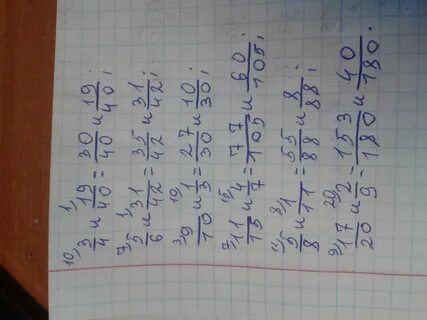 10/ 3/4 и 1/ 19/40 = 30/40 и 19/40;
7/ 5/6 и 1/ 31/42 = 35/42 и 31/42;
3/ 9/10 и 10/ 1/3 = 27/30 и 10/30;
7/ 11/15 и 15/ 4/7 = 77/105 и 60/105;
11/ 5/8 и 8/ 1/11 = 55/88 и 8/88;
9/ 17/20 и 20/ 2/9 = 153/180 и 40/180.